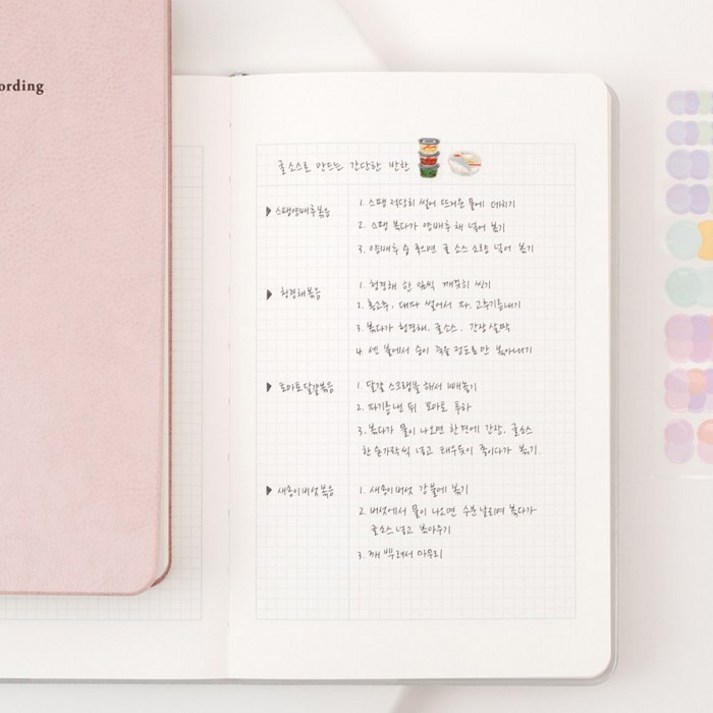 ording
굴소스로 만드는 간단한 반찬
스팸양배추볶음
1. 스팸 적당히 썰어 뜨거운 물에 데치기
2. 스팸 볶다가 양배추 채 넣어 볶기
3. 양배추 숨 죽으면 굴 소스 소량 넣어 볶기
청경채볶음
1. 청경채 한 잎씩 깨끗히 씻기
2. 홍고추, 대파 썰어서 파, 고추기름내기
3. 볶다가 청경채, 굴소스, 간장 살짝
4. 센 불에서 숨이 죽을 정도로만 볶아내기
토마토달걀볶음
1. 달걀 스크램블 해서 빼놓기
2. 파기름 낸 뒤 토마토 투하
3. 볶다가 물이 나오면 한켠에 간장, 굴소스
한 숟가락씩 넣고 태우듯이 졸이다가 볶기
새송이버섯볶음
1. 새송이버섯 강불에 볶기
2. 버섯에서 물이 나오면 수분 날리며 볶다가
굴소스 넣고 볶아주기
3. 깨 뿌려서 마무리